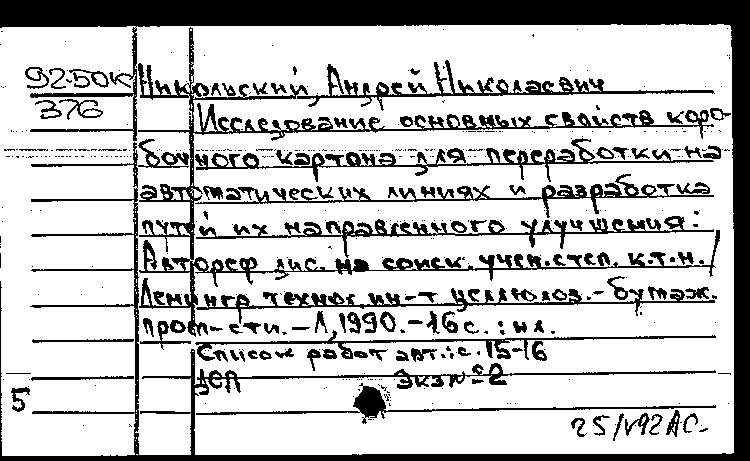 92-50К Никольский, Андрей Николаевич
376
Исследование основных свойств коро-
бочного картона для переработки на
автоматических линиях и разработка
путей их направленного улучшения:
Автореф дис. на соиск. учен. степ. к.т.н. /
Ленингр технол. ин-т целлюлоз.-бумаж.
пром-сти. - Л, 1990. - 16 с. : ил.
Список работ авт.: с. 15-16
Экз № 2
5
25/V92 АС-